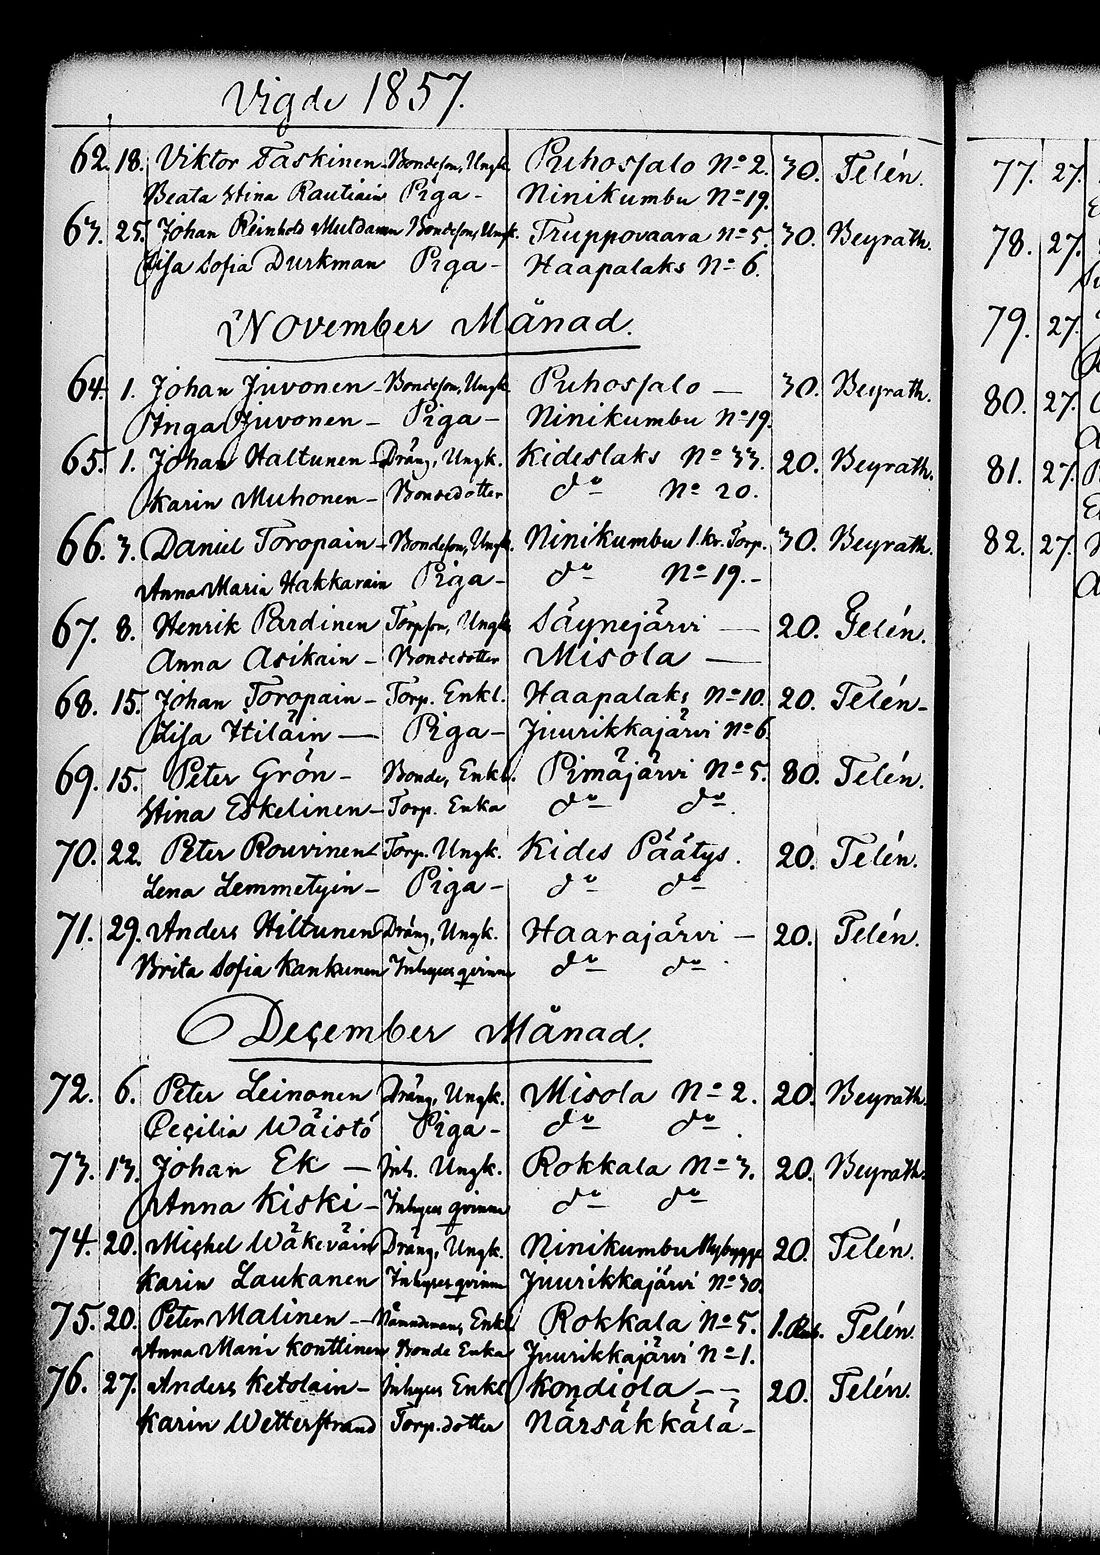 Vigde 1857.
62. 18. Viktor Taskinen - Bondeson, Ungk. Puhossalo No 2. 30. Telén.
Beata Stina Rautiain Piga - Ninikumbu No 19.
63. 25. Johan Reinhold Bondeson, Ungk. Truppovaara No 5. 30. Beyrath.
Lisa Sofia Durkman Piga - Haapalaks No 6.
November Månad.
64. 1. Johan Juvonen - Bondeson, Ungk. Puhossalo — 30. Beyrath.
Inga Juvonen - Piga - Ninikumbu No 19.
65. 1. Johan Haltunen - Dräng, Ungk. Kideslaks No 33. 20. Beyrath.
Karin Muhonen - Bondedotter do No 20.
66. 3. Daniel Toropain - Bondeson, Ungk. Ninikumbu 1. kr. Torp. 30. Beyrath.
Anna Maria Hakkarain Piga - do No 19. -
67. 8. Henrik Pardinen Torpson, Ungk. Säynejärvi — 20. Gelén.
Anna Asikain - Bondedotter Misola —
68. 15. Johan Toropain - Torp. Enkl. Haapalaks No 10. 20. Telén -
Lisa Hiläin — Piga - Juurikkajärvi No 6.
69. 15. Peter Grön - Bonde, Enkl. Pimäjärvi No 5. 80. Telén.
Stina Eskelinen - Torp. Enka do do.
70. 22. Peter Rouvinen - Torp. Ungk. Kides Päätys. 20. Telén.
Lena Lemmetyin - Piga - do do
71. 29. Anders Hiltunen Dräng, Ungk. Haarajärvi - 20. Telén.
Brita Sofia Kankunen Inhyses qvinna do do.
December Månad.
72. 6. Peter Leinonen Dräng, Ungk. Misola No 2. 20. Beyrath.
Cecilia Wäistö Piga - do do.
73. 13. Johan Ek — Inh. Ungk. Rokkala No 3. 20. Beyrath.
Anna Kiski - Inhyses qvinna do do
74. 20. Michel Wäkeväin Dräng, Ungk. Ninikumbu Nybygge 20. Telén.
Karin Laukanen Inhyses qvinna Juurikkajärvi No 30.
75. 20. Peter Malinen - Nämndemans, Enkl. Rokkala No 5. 1. Rub. Telén.
Anna Maria Konttinen Bonde Enka Juurikkajärvi No 1.
76. 27. Anders Ketolain - Inhyses Enkl. Kondiola - - 20. Telén.
Karin Wetterstrand Torp. dotter Närsäkkälä -
77. 27.
78. 27.
79. 27.
80. 27.
81. 27.
82. 27.